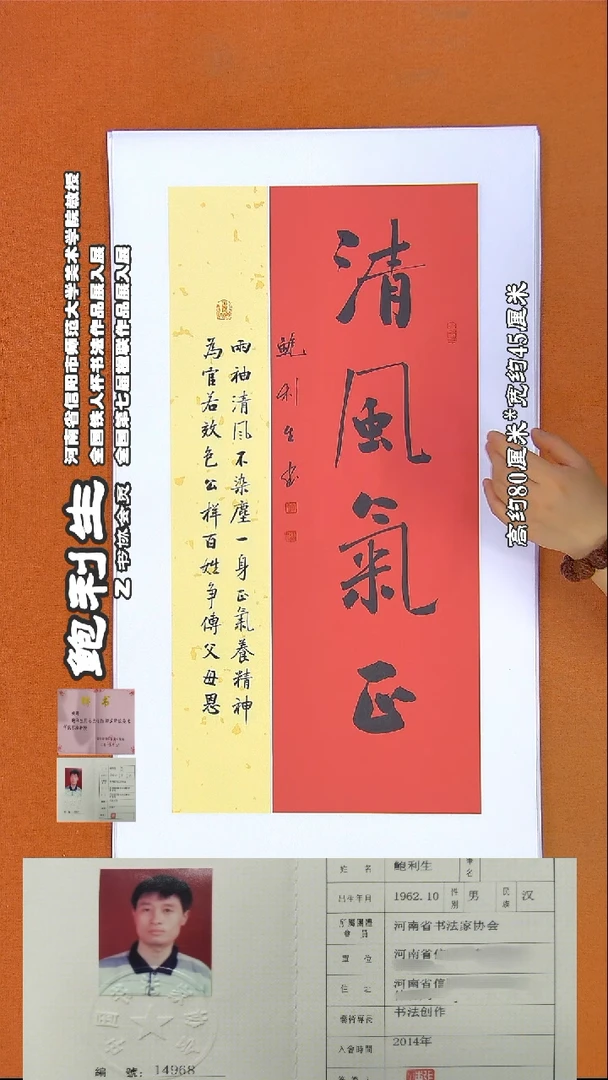 清風氣正
鮑利生書
兩袖清風不染塵一身正氣養精神
為官若效包公樣百姓爭傳父母恩
高约80厘米*宽约45厘米
河南省信阳市
大学美术学院教授
全国
书法作品展入展
全国第七届楹联作品展入展
鲍利生
书协会员
证书
姓 名
鲍利生
出生年月
1962.10
性别
男
民族
汉
河南省书法家协会
单 位
河南省信
住 址
河南省信
书法创作
入會時間
2014年
編 號: 14968